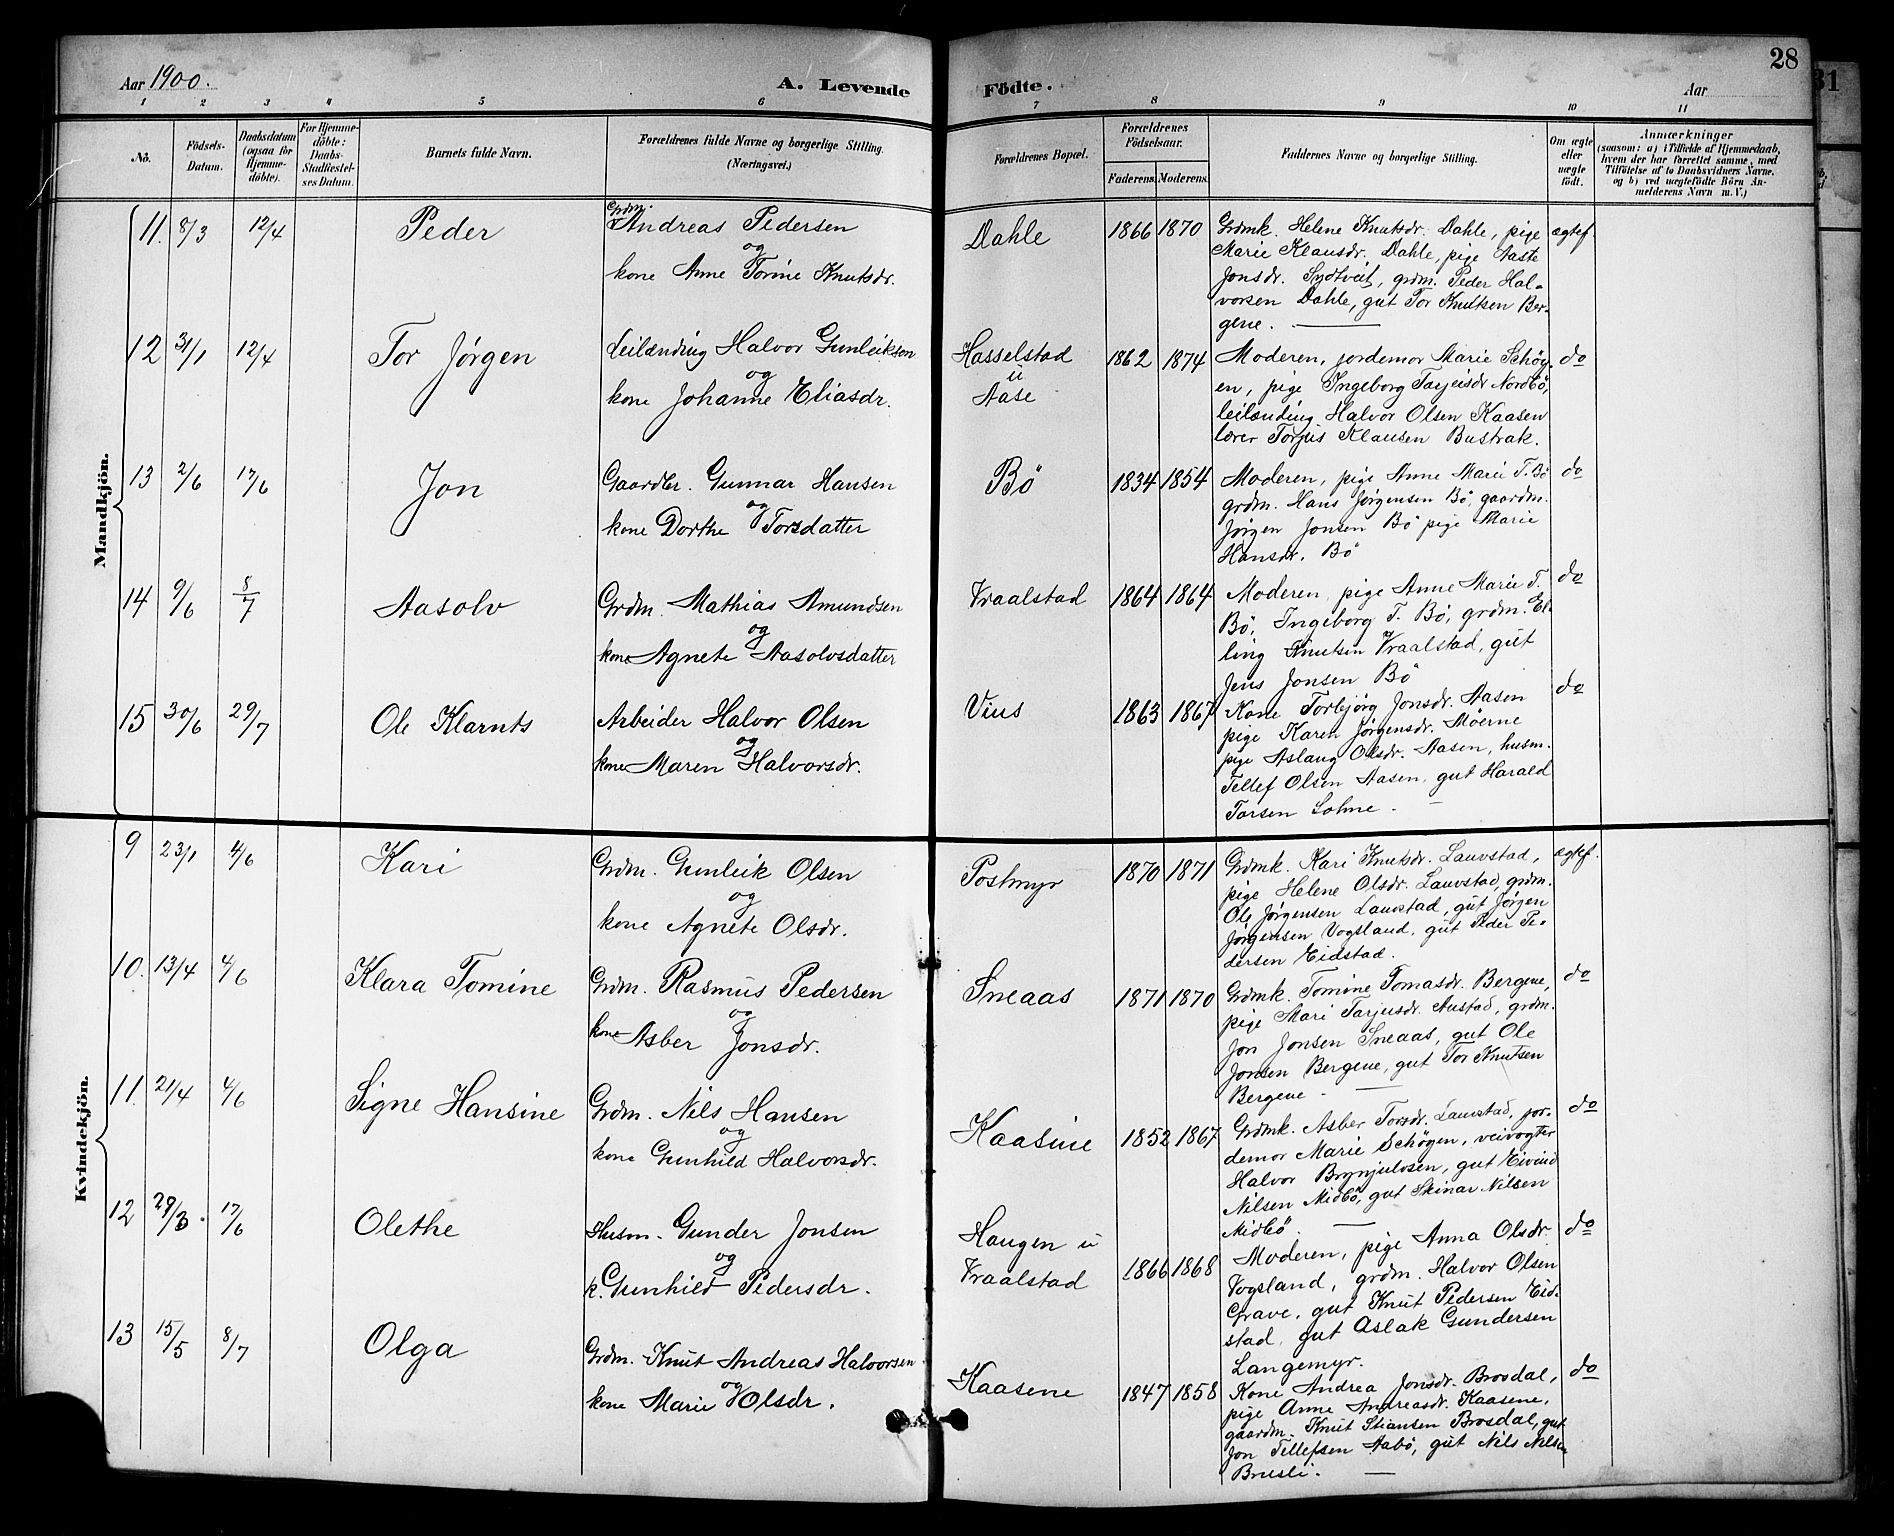 28
31
Aar 1900.
A. Levende
Födte.
Aar
1 2 3 4 5 6 7 8 9 10 11
Nö.
Födsels-
Datum.
Daabsdatum
(ogsaa för
Hjemme-
döbte).
For Hjemme-
döbte:
Daabs-
Stadfæstel-
ses Datum.
Barnets fulde Navn.
Forældrenes fulde Navne og borgerlige Stilling.
(Næringsvei.)
Forældrenes Bopæl.
Forældrenes
Födselsaar.
Faderens. Moderens.
Faddernes Navne og borgerlige Stilling.
Om ægte
eller
uægte
födt.
Anmærkninger
(saasom: a) i Tilfælde af Hjemmedaab,
hvem der har forrettet samme, med
Tilföielse af to Daabsvidners Navne,
og b) ved uægtefödte Börn An-
melderens Navn m. V.)
Mandkjön.
11. 8/3 12/4 Peder
Grdm. Andreas Pedersen
og
kone Anne Torine Knutsdr.
Dahle 1866 1870
Grdmk. Helene Knutsdr. Dahle, pige
Marie Klausdr. Dahle, pige Aaste
Jonsdr. Sydtveit, grdm. Peder Hal-
vorsen Dahle, gut Tor Knutsen Ber-
gene.
ægtef.
12 31/1 12/4 Tor Jörgen
Leilænding Halvor Gunleikson
og
kone Johanne Eliasdr.
Hasselstad
u
Aase
1862 1874
Moderen, jordemor Marie Schöy-
en, pige Ingeborg Tarjeisdr Nordbö,
leilænding Halvor Olsen Kaasen
lærer Torjus Klausen Bustrak.
do
13 2/6 17/6 Jon
Gaardbr. Gunnar Hansen
og
kone Dorthe Torsdatter
Bö 1834 1854
Moderen, pige Anne Marie T. Bö
grdm. Hans Jörgensen Bö, gaardm.
Jörgen Jonsen Bö pige Marie
Hansdr. Bö
do
14 9/6 8/7 Aasolv
Grdm. Mathias Amundsen
og
kone Agnete Aasolvsdatter
Vraalstad 1864 1864
Moderen, pige Anne Marie T.
Bö, Ingeborg T. Bö, grdm. El-
ling Knutsen Vraalstad, gut
Jens Jonsen Bö
do
15 30/6 29/7 Ole Klarnts
Arbeider Halvor Olsen
og
kone Maren Halvorsdr.
Vius 1863 1867
Kone Torbjörg Jonsdr. Aasen
pige Karen Jörgensdr. Möerne
pige Aslaug Olsdr. Aasen, husm.
Tellef Olsen Aasen, gut Harald
Tarsen Lohne.
do
Kvindekjön.
9 23/1 4/6 Kari
Grdm. Gunleik Olsen
og
kone Agnete Olsdr.
Postmyr 1870 1871
Grdmk. Kari Knutsdr. Lauvstad,
pige Helene Olsdr. Lauvstad, grdm.
Ole Jörgensen Lauvstad, gut Jörgen
Jörgensen Vogsland, gut Peder Pe-
dersen Eidstad.
ægtef.
10. 13/4 4/6 Klara Tomine
Grdm. Rasmus Pedersen
og
kone Asber Jonsdr.
Sneaas 1871 1870
Grdmk. Tomine Tomasdr. Bergene,
pige Mari Tarjusdr. Austad, grdm.
Jon Jonsen Sneaas, gut Ole
Jonsen Bergene, gut Tor Knutsen
Bergene.
do
11. 21/4 4/6 Signe Hansine
Grdm. Nils Hansen
og
kone Gunhild Halvorsdr.
Kaasine 1852 1867
Grdmk. Asber Torsdr. Lauvstad, jor-
demor Marie Schögen, veivogter
Halvor Brynjulvsen, gut Eivind
Nilsen Midbö, gut Steinar Nilsen
Midbö.
do
12 29/3. 17/6 Olethe
Husm. Gunder Jonsen
og
k. Gunhild Pedersdr.
Haugen u
Vraalstad
1866 1868
Moderen, pige Anna Olsdr.
Vogsland, grdm. Halvor Olsen
Grave, gut Knut Pedersen Eid-
stad, gut Aslak Gundersen
Langemyr.
do
13 15/5 8/7 Olga
Grdm. Knut Andreas Halvorsen
og
kone Marie Olsdr.
Kaasene 1847 1858
Kone Andrea Jonsdr. Brosdal,
pige Anne Andreasdr. Kaasene,
gaardm. Knut Stiansen Brosdal, gut
Jon Tellefsen Aabö, gut Nils Nilsen
Brusli.
do